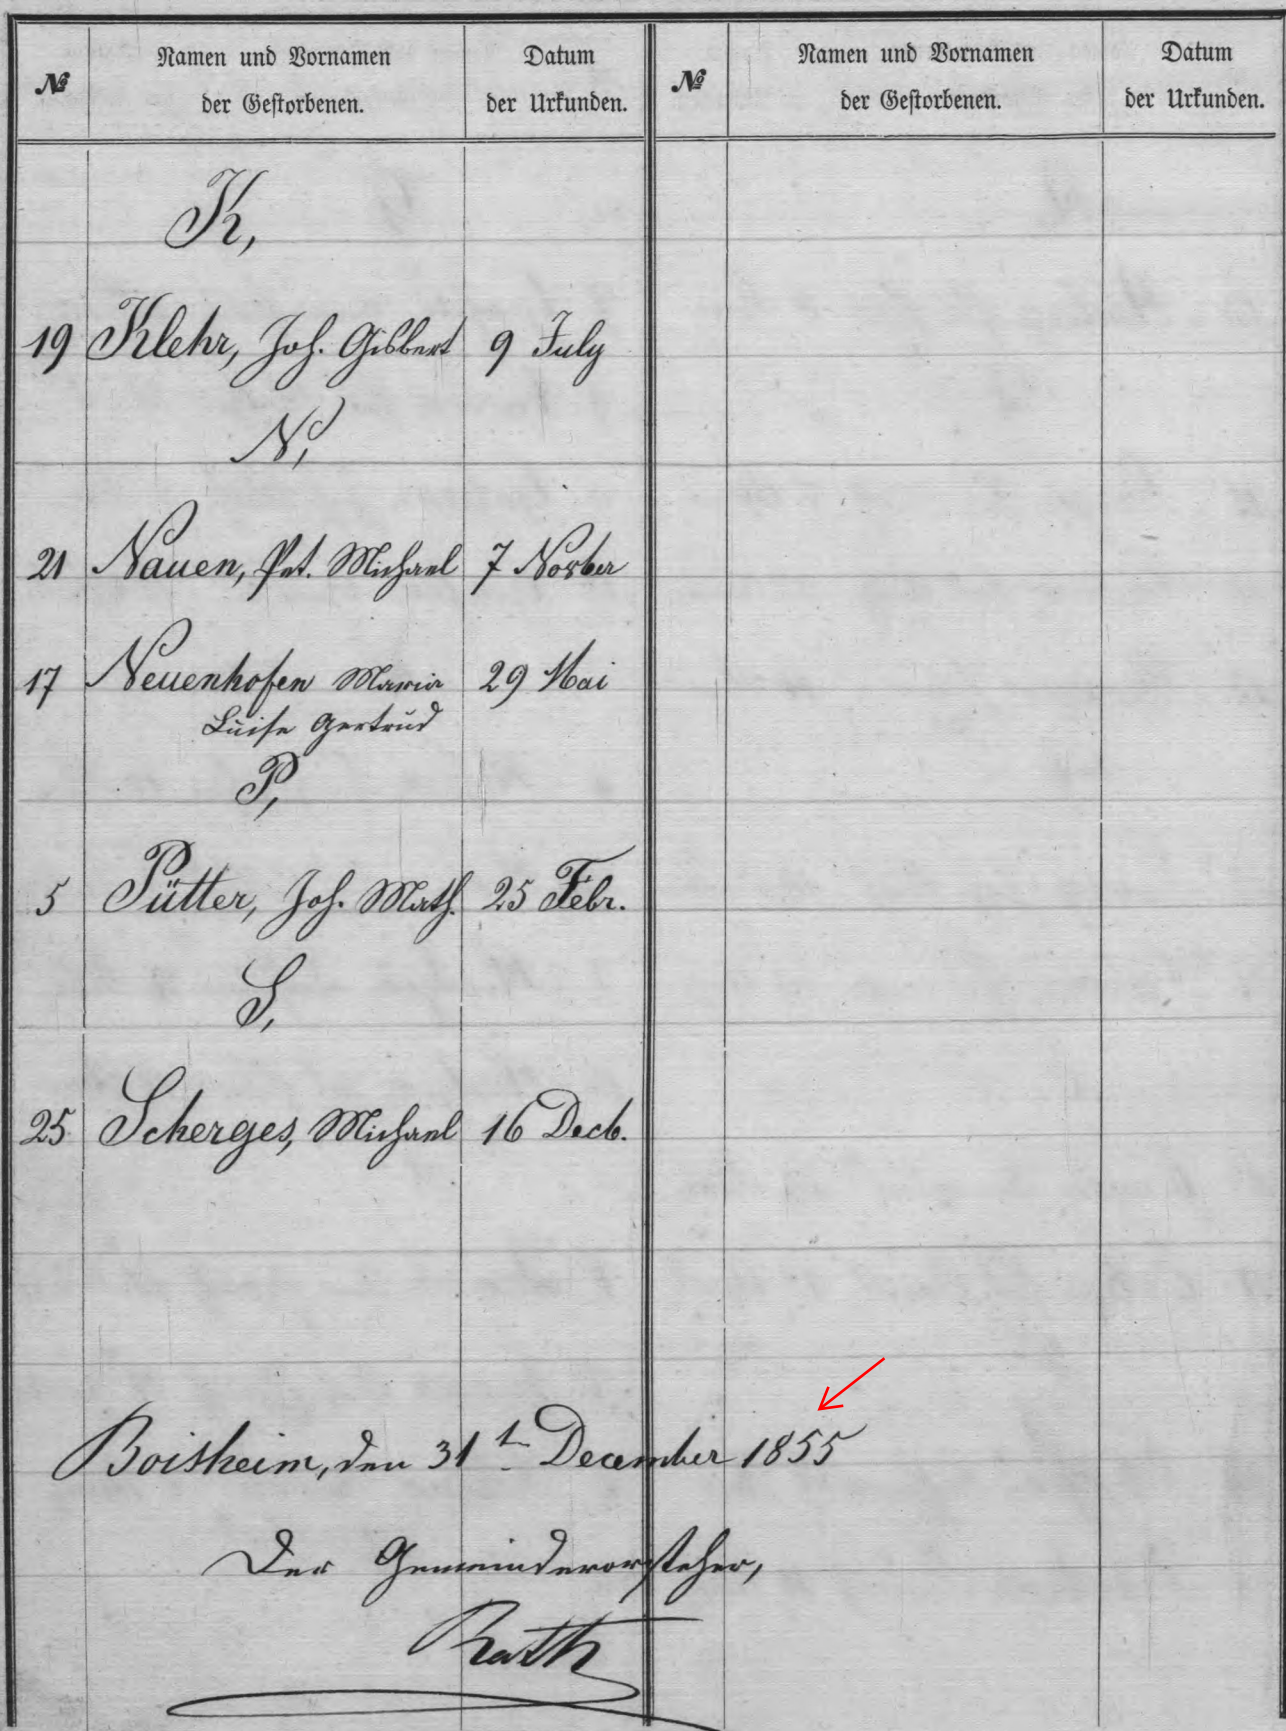 № Namen und Vornamen der Gestorbenen. Datum der Urkunden. № Namen und Vornamen der Gestorbenen. Datum der Urkunden.
K,
19 Klehr, Joh. Gisbert 9 July
N,
21 Nauen, Pet. Michael 7 Novber
17 Neuenhofen Maria 29 Mai
Luise Gertrud
P,
5 Pütter, Joh. Math. 25 Febr.
S,
25 Scherges, Michael 16 Decb.
Boisheim, den 31t December 1855
Der Gemeindevorsteher,
Rath